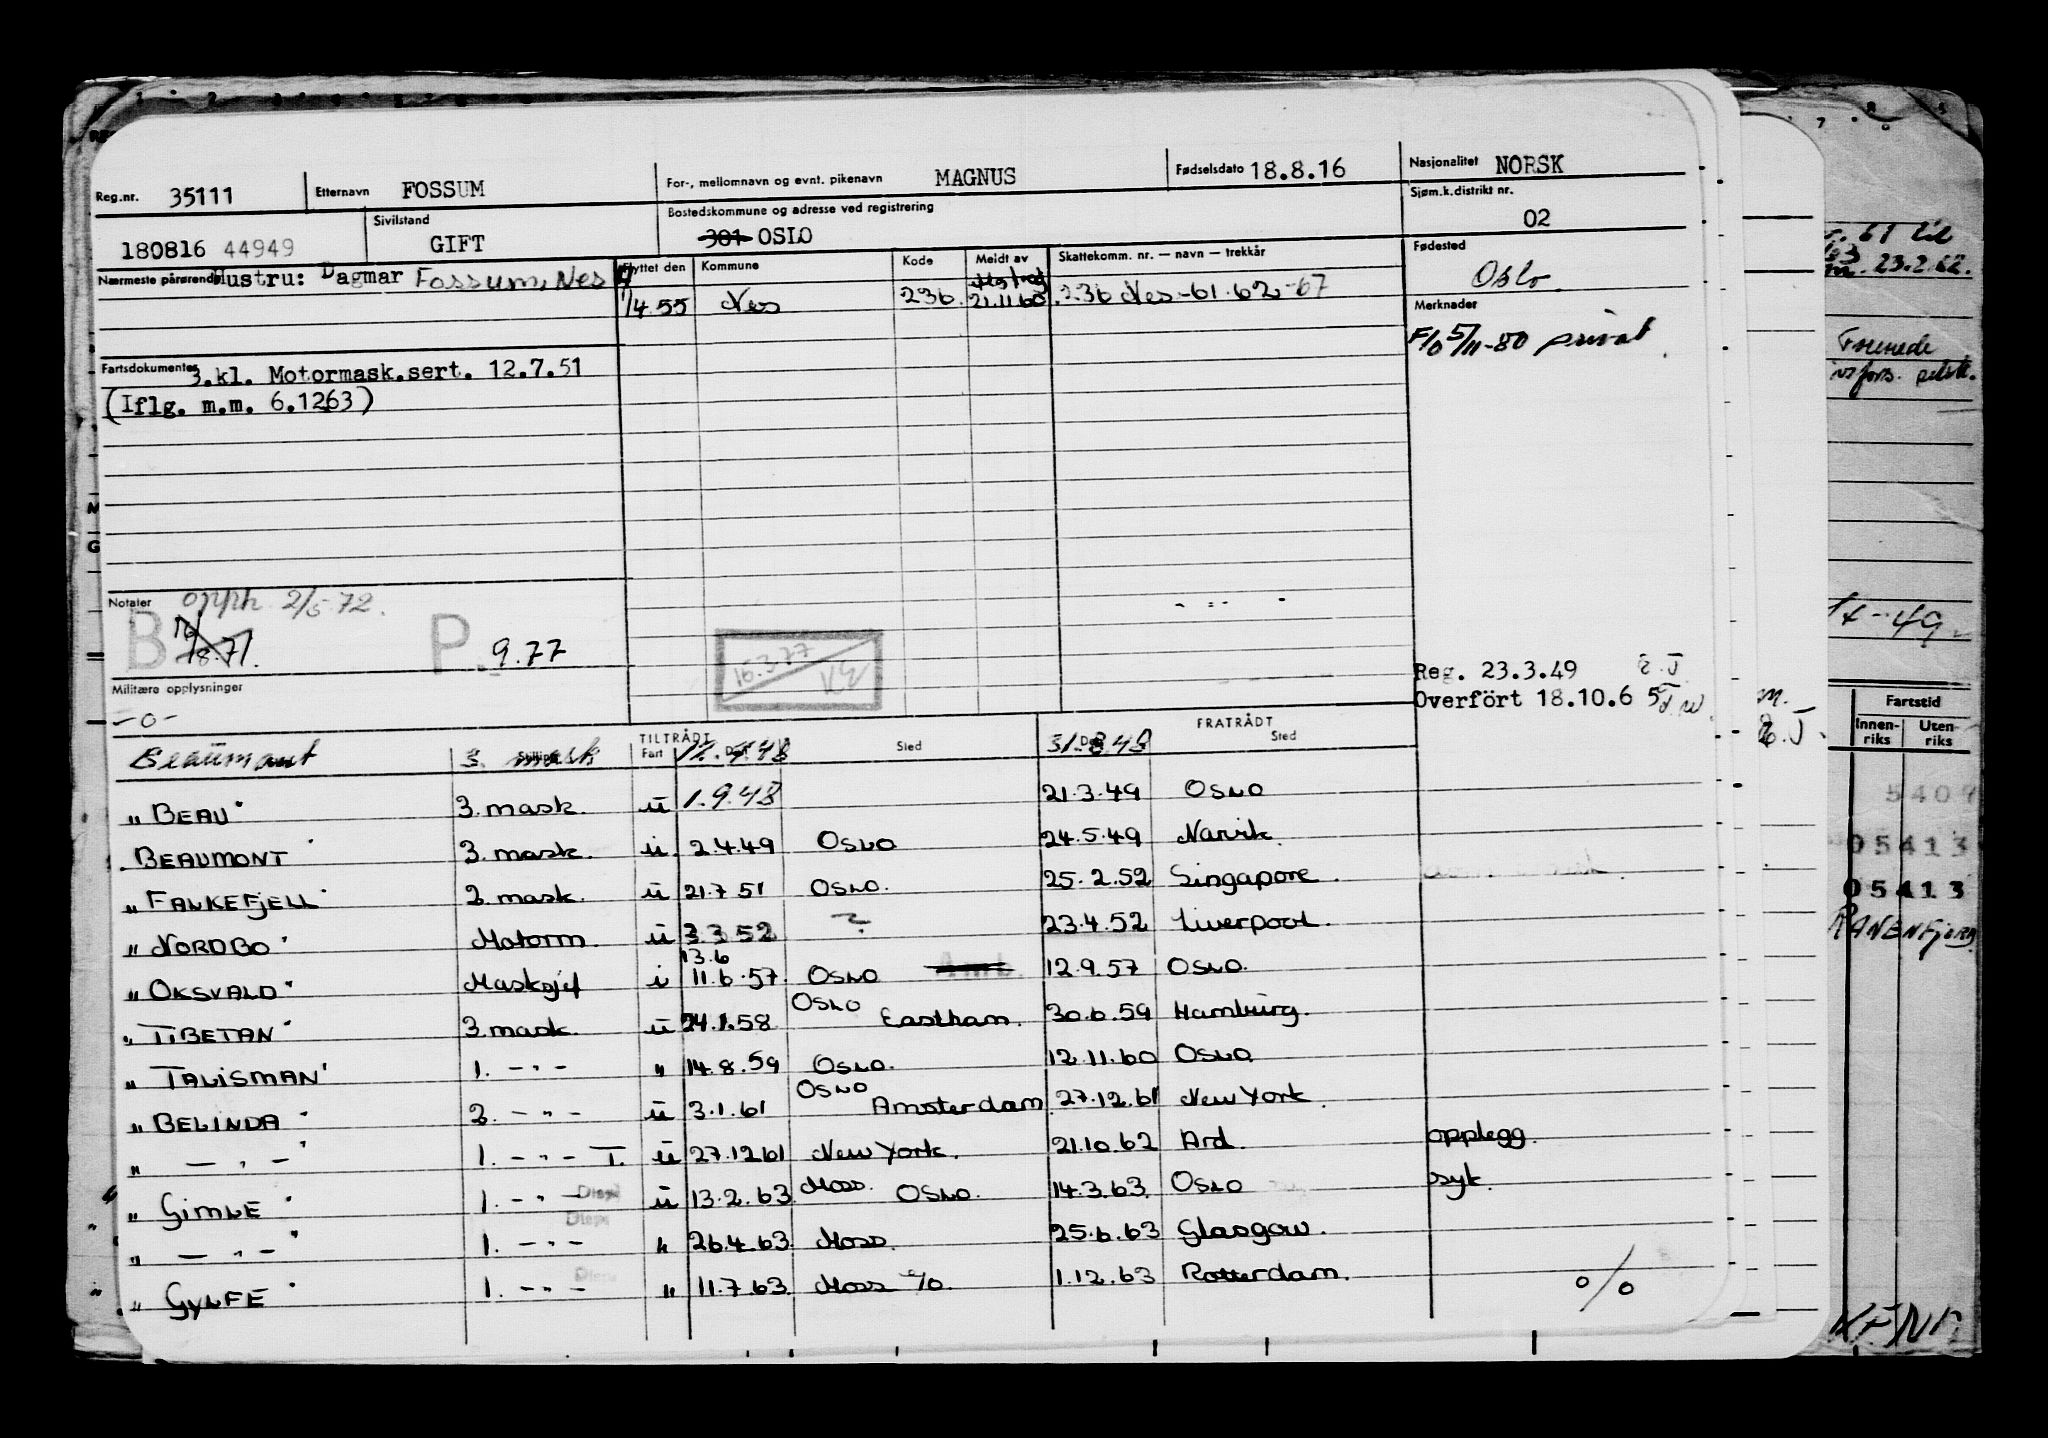 Reg.nr. 35111 Etternavn FOSSUM For-, mellomnavn og evnt. pikenavn MAGNUS Fødselsdato 18.8.16 Nasjonalitet NORSK
180816 44949 Sivilstand GIFT Bostedskommune og adresse ved registrering 301 OSLO Sjøm.k.distrikt nr. 02
Nærmeste pårørende Hustru: Dagmar Fossum, Nes
Flyttet den Kommune Kode Meldt av Skattekomm. nr. — navn — trekkår
1/4 55 Nes 236. 21.11.60 236 Nes -61-62-67
Fødested
Oslo.
Merknader
F/O 5/11-80 privat
Fartsdokumenter 3.kl. Motormask.sert. 12.7.51
(Iflg. m.m. 6.1263)
Notater opph 2/5 72.
B 8.71. P. 9.77
16.3.77
Militære opplysninger
-o-
Reg. 23.3.49
Overført 18.10.6 5
TILTRÅDT FRATRÅDT
Stilling Fart Dato Sted Dato Sted
Beaumont 3. mask 31.8.48
" BEAU" 3. mask. u 1.9.48 21.3.49 OSLO
BEAUMONT 3. mask. u. 2.4.49 OSLO 24.5.49 Narvik.
" FALKEFJELL" 2. mask. u 21.7 51 OSLO. 25.2.52 Singapore.
" NORDBO" Motorm. u 3.3 52 ? 23.4.52 Liverpool.
13.6
" OKSVALD" Masksjef i 11.6.57. OSLO 12.9.57 OSLO.
" TIBETAN" 3. mask. u 24.1.58 OSLO Eastham. 30.6.59 Hamburg.
" TALISMAN" 1. - " - " 14.8.59 OSLO. 12.11.60 OSLO
" BELINDA" 2. - " - u 3.1.61 OSLO Amsterdam. 27.12.61 New York.
" — " —" 1. - " - T. u 27.12 61 New York. 21.10.62 Ard. opplegg.
" GIMLE" 1. - " - u 13.2.63. Moss. OSLO. 14.3.63. OSLO syk.
" — " —" 1. - " - " 26.4.63. Moss. 25.6.63 Glasgow.
" GYLFE" 1. - " - " 11.7.63. Moss c/o. 1.12.63 Rotterdam.
o/o
23.2.62.
Fartstid
Innen-riks Uten-riks
5409
05413
05413
RANENFJORD